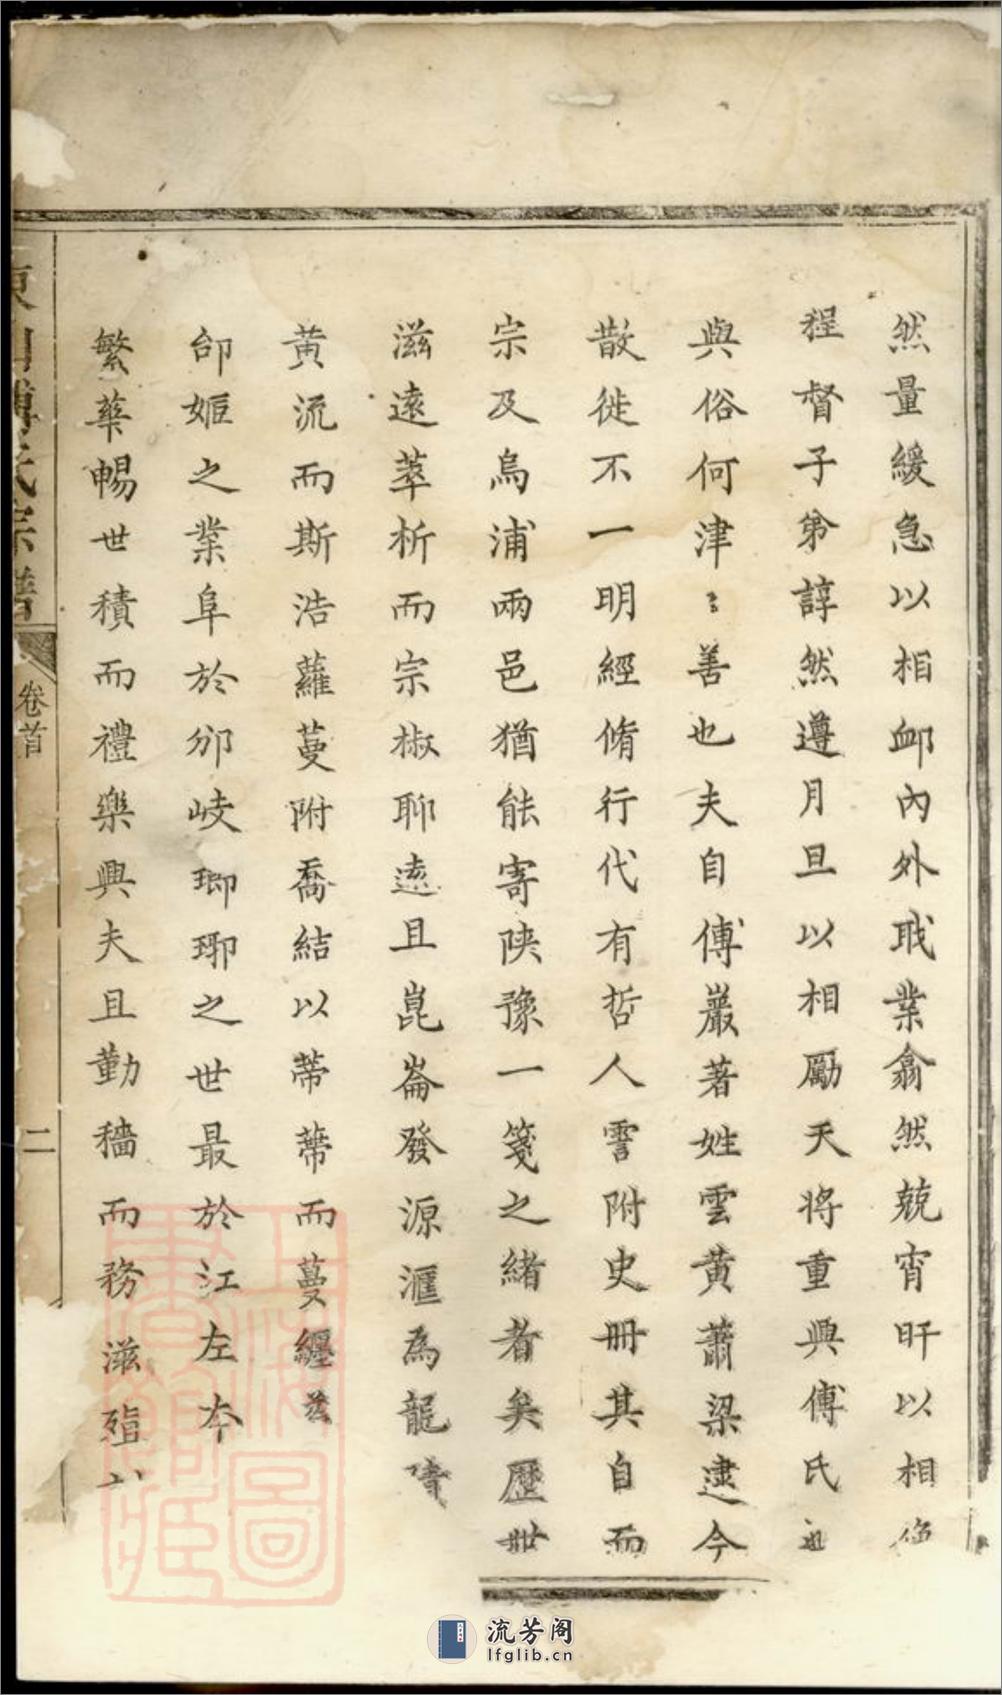 然量緩急以相卹內外戢業翕然兢宵旰以相
程督子弟諄然遵月旦以相勵天將重興傅氏
與俗何津〻善也夫自傅巖著姓雲黃蕭梁逮今
散徙不一明經脩行代有哲人䨱附史冊其自而
宗及烏浦兩邑猶能寄陝豫一箋之緒者矣歷世
滋遠萃析而宗椒聊遠且崑崙發源滙為龍
黃流而斯浩蘿蔓附喬結以蒂蒂而蔓纒
邰姬之業阜於邠岐瑯琊之世最於江左本
繁華暢世積而禮樂興夫且勤穡而務滋殖
東山傅氏宗譜
卷首
二
上海圖書館藏
流芳阁
lfglib.cn